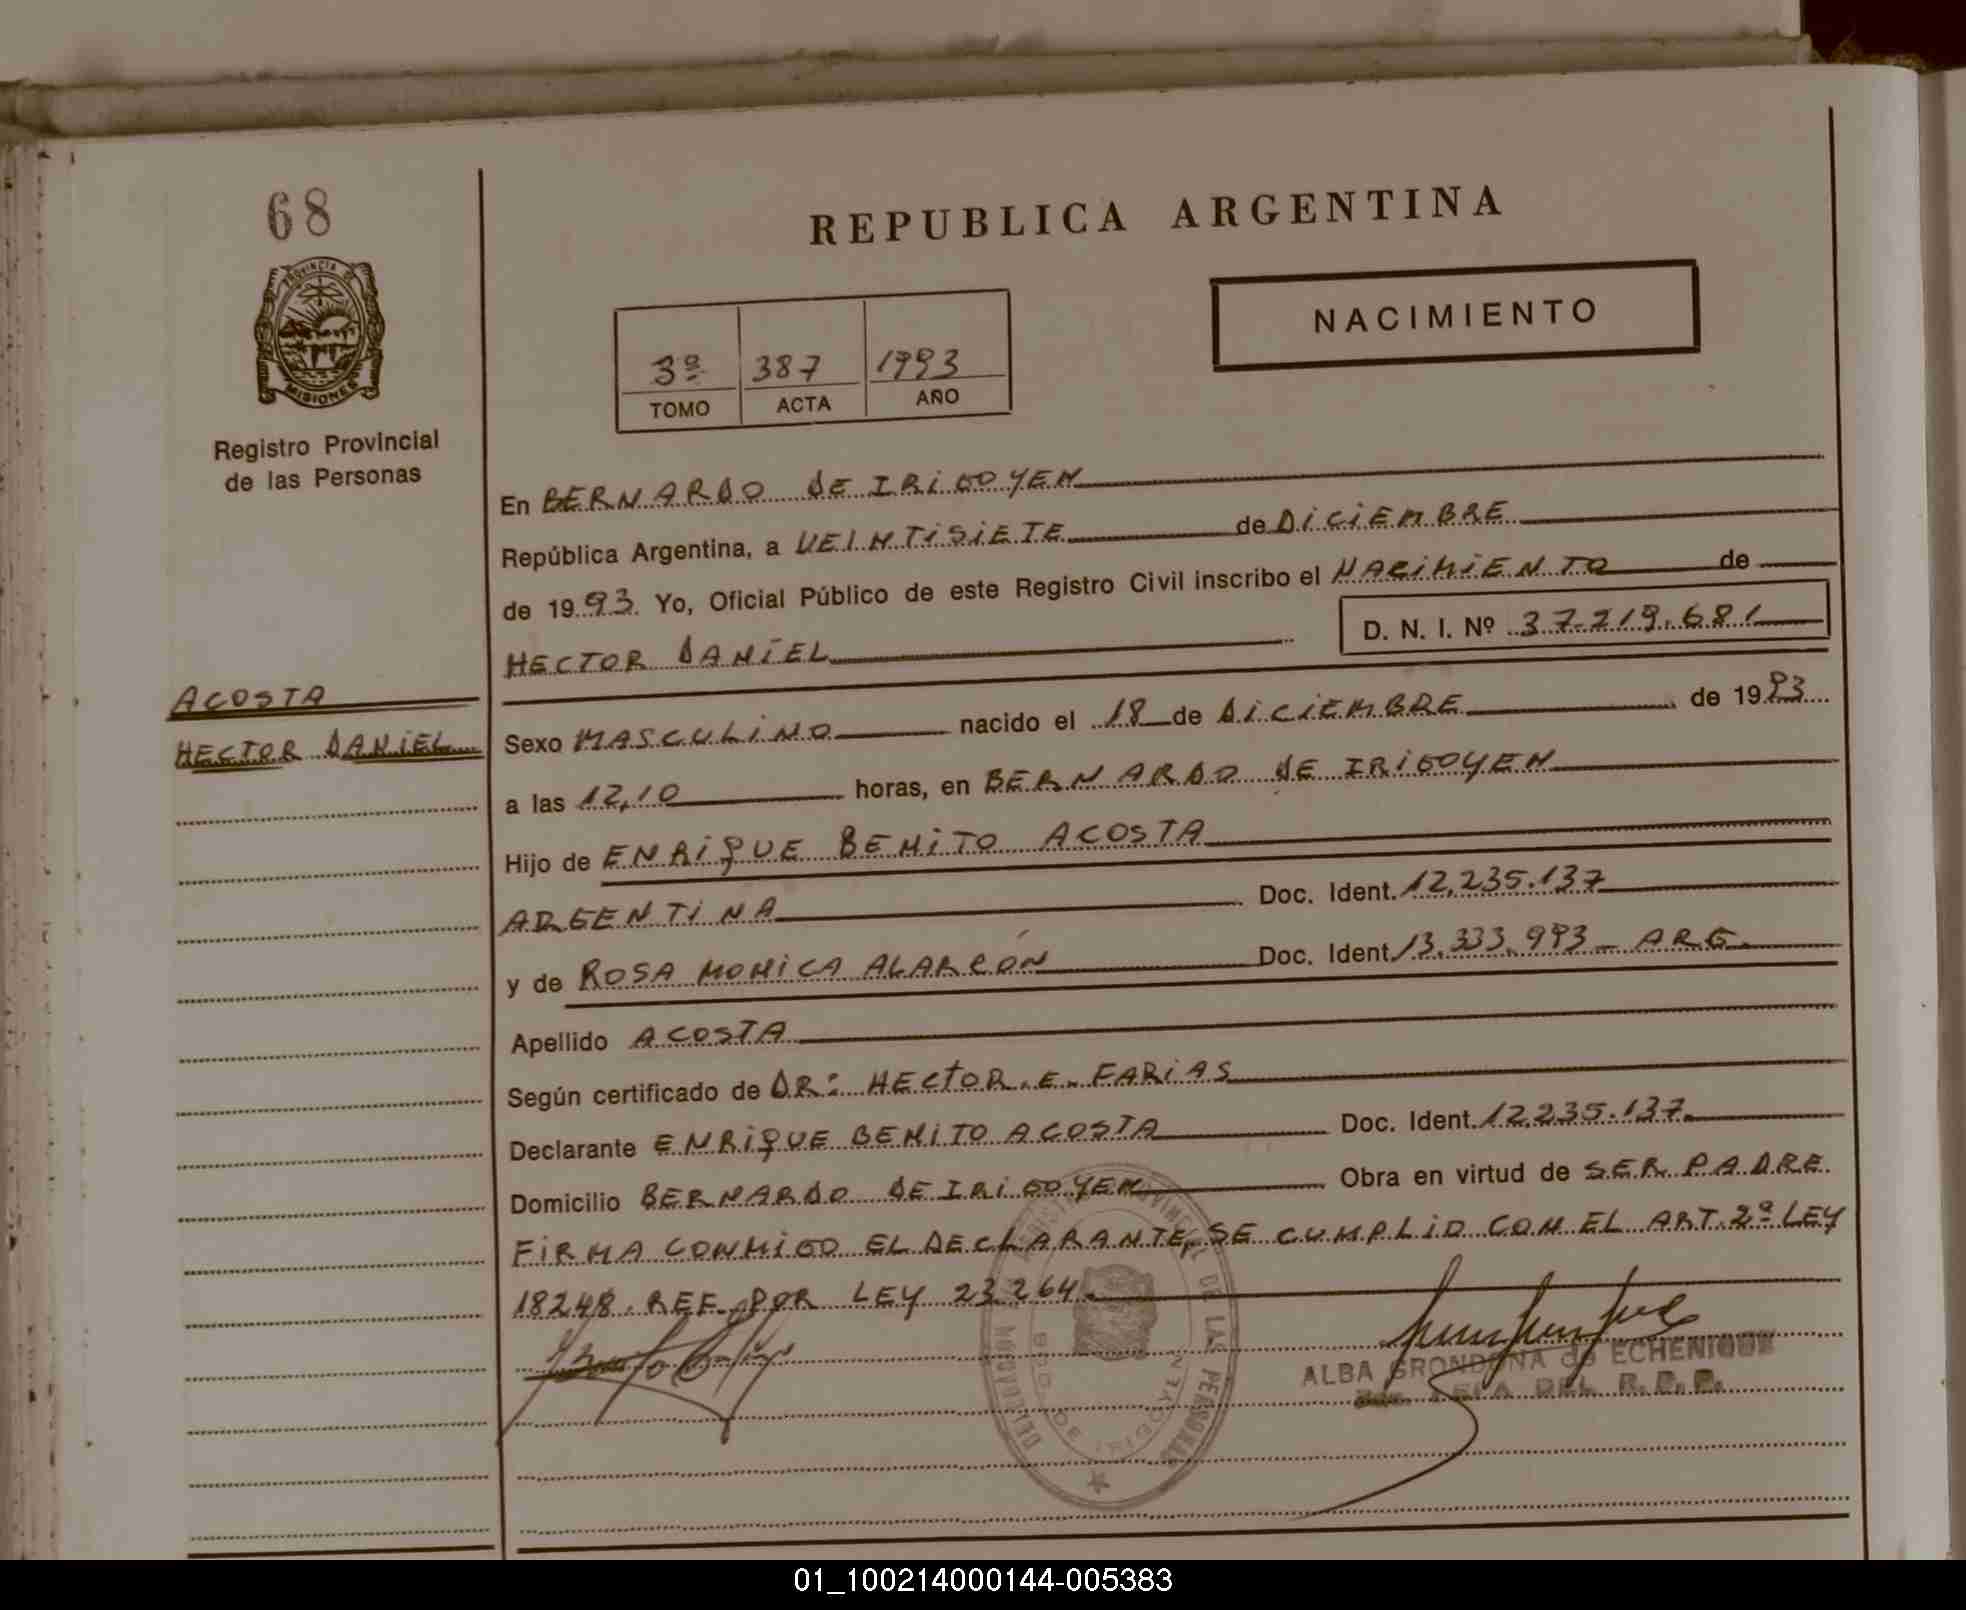 68
PROVINCIA DE
MISIONES
Registro Provincial
de las Personas
ACOSTA
HECTOR DANIEL
REPUBLICA ARGENTINA
NACIMIENTO
3º 387 1993
TOMO ACTA AÑO
En BERNARDO DE IRIGOYEN
República Argentina, a VEINTISIETE de DICIEMBRE
de 1993. Yo, Oficial Público de este Registro Civil inscribo el NACIMIENTO de
HECTOR DANIEL D. N. I. Nº 37.219.681
Sexo MASCULINO nacido el 18 de DICIEMBRE de 1993
a las 12,10 horas, en BERNARDO DE IRIGOYEN
Hijo de ENRIQUE BENITO ACOSTA
ARGENTINA Doc. Ident. 12.235.137
y de ROSA MONICA ALARCÓN Doc. Ident. 13.333.993 - ARG.
Apellido ACOSTA
Según certificado de DR: HECTOR. E. FARIAS
Declarante ENRIQUE BENITO ACOSTA Doc. Ident. 12.235.137.
Domicilio BERNARDO DE IRIGOYEN Obra en virtud de SER PADRE.
FIRMA CONMIGO EL DECLARANTE, SE CUMPLIO CON EL ART. 2º LEY
18248. REF. POR LEY 23.264.
ALBA GRONDONA de ECHENIQUE
JEFA DEL R. P. P.
PROVINCIAL DE LAS PERSONAS
BDO. DE IRIGOYEN
01_100214000144-005383